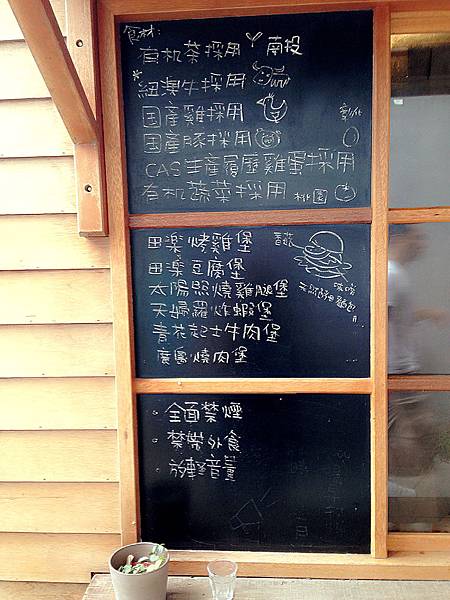 食材:
有机茶採用 南投
*紐澳牛採用
国産雞採用 彰化
国産豚採用
CAS生産履歷雞蛋採用
有机蔬菜採用 桃園
田楽烤雞堡
田楽豆腐堡
太陽照燒雞腿堡
天婦羅炸蝦堡
青花起士牛肉堡
廣島燒肉堡
全面禁煙
禁帶外食
放輕音量